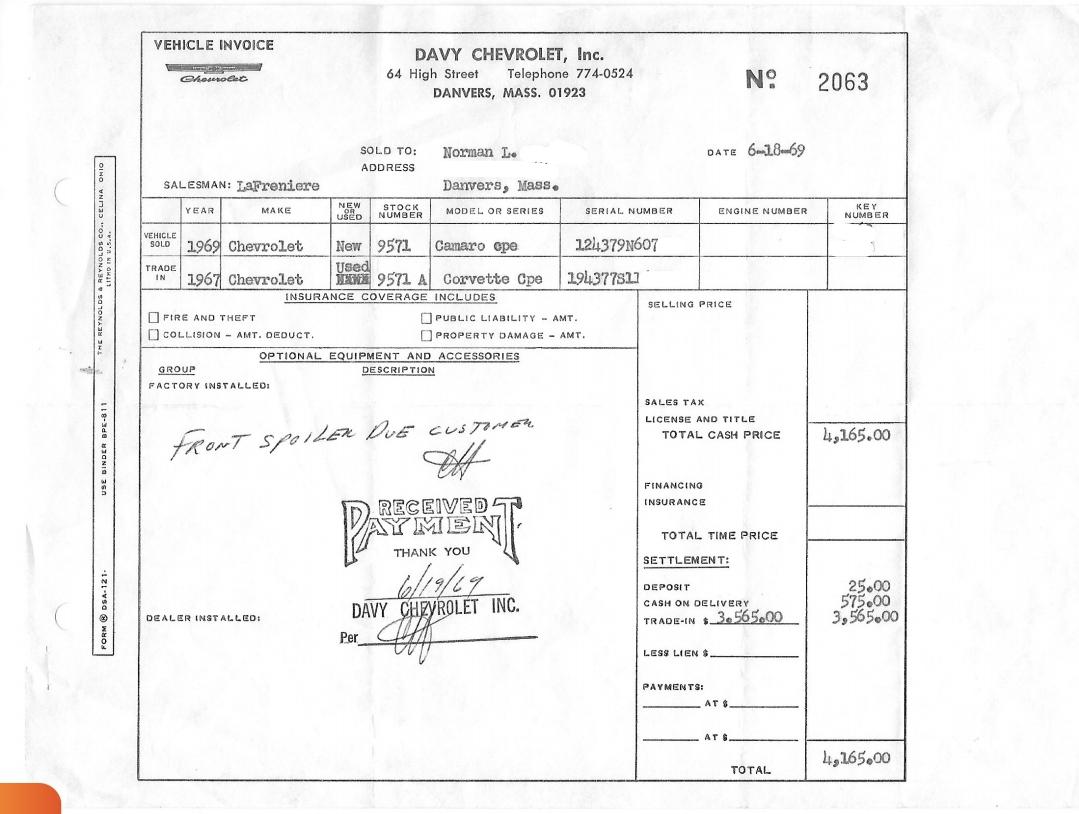 VEHICLE INVOICE
Chevrolet
DAVY CHEVROLET, Inc.
64 High Street Telephone 774-0524
DANVERS, MASS. 01923
Nº 2063
SOLD TO: Norman L.
DATE 6-18-69
ADDRESS
SALESMAN: LaFreniere Danvers, Mass.
YEAR MAKE NEW OR USED STOCK NUMBER MODEL OR SERIES SERIAL NUMBER ENGINE NUMBER KEY NUMBER
VEHICLE SOLD 1969 Chevrolet New 9571 Camaro cpe 124379N607
TRADE IN 1967 Chevrolet Used 9571 A Corvette Cpe 194377S11
INSURANCE COVERAGE INCLUDES
FIRE AND THEFT PUBLIC LIABILITY - AMT.
COLLISION - AMT. DEDUCT. PROPERTY DAMAGE - AMT.
OPTIONAL EQUIPMENT AND ACCESSORIES
GROUP DESCRIPTION
FACTORY INSTALLED:
FRONT SPOILER DUE CUSTOMER
RECEIVED
PAYMENT
THANK YOU
6/19/69
DAVY CHEVROLET INC.
Per
DEALER INSTALLED:
SELLING PRICE
SALES TAX
LICENSE AND TITLE
TOTAL CASH PRICE 4,165.00
FINANCING
INSURANCE
TOTAL TIME PRICE
SETTLEMENT:
DEPOSIT 25.00
CASH ON DELIVERY 575.00
TRADE-IN $ 3,565.00 3,565.00
LESS LIEN $
PAYMENTS:
AT $
AT $
TOTAL 4,165.00
FORM ® DSA-121- USE BINDER BPE-811 THE REYNOLDS & REYNOLDS CO., CELINA, OHIO
LITHO IN U.S.A.